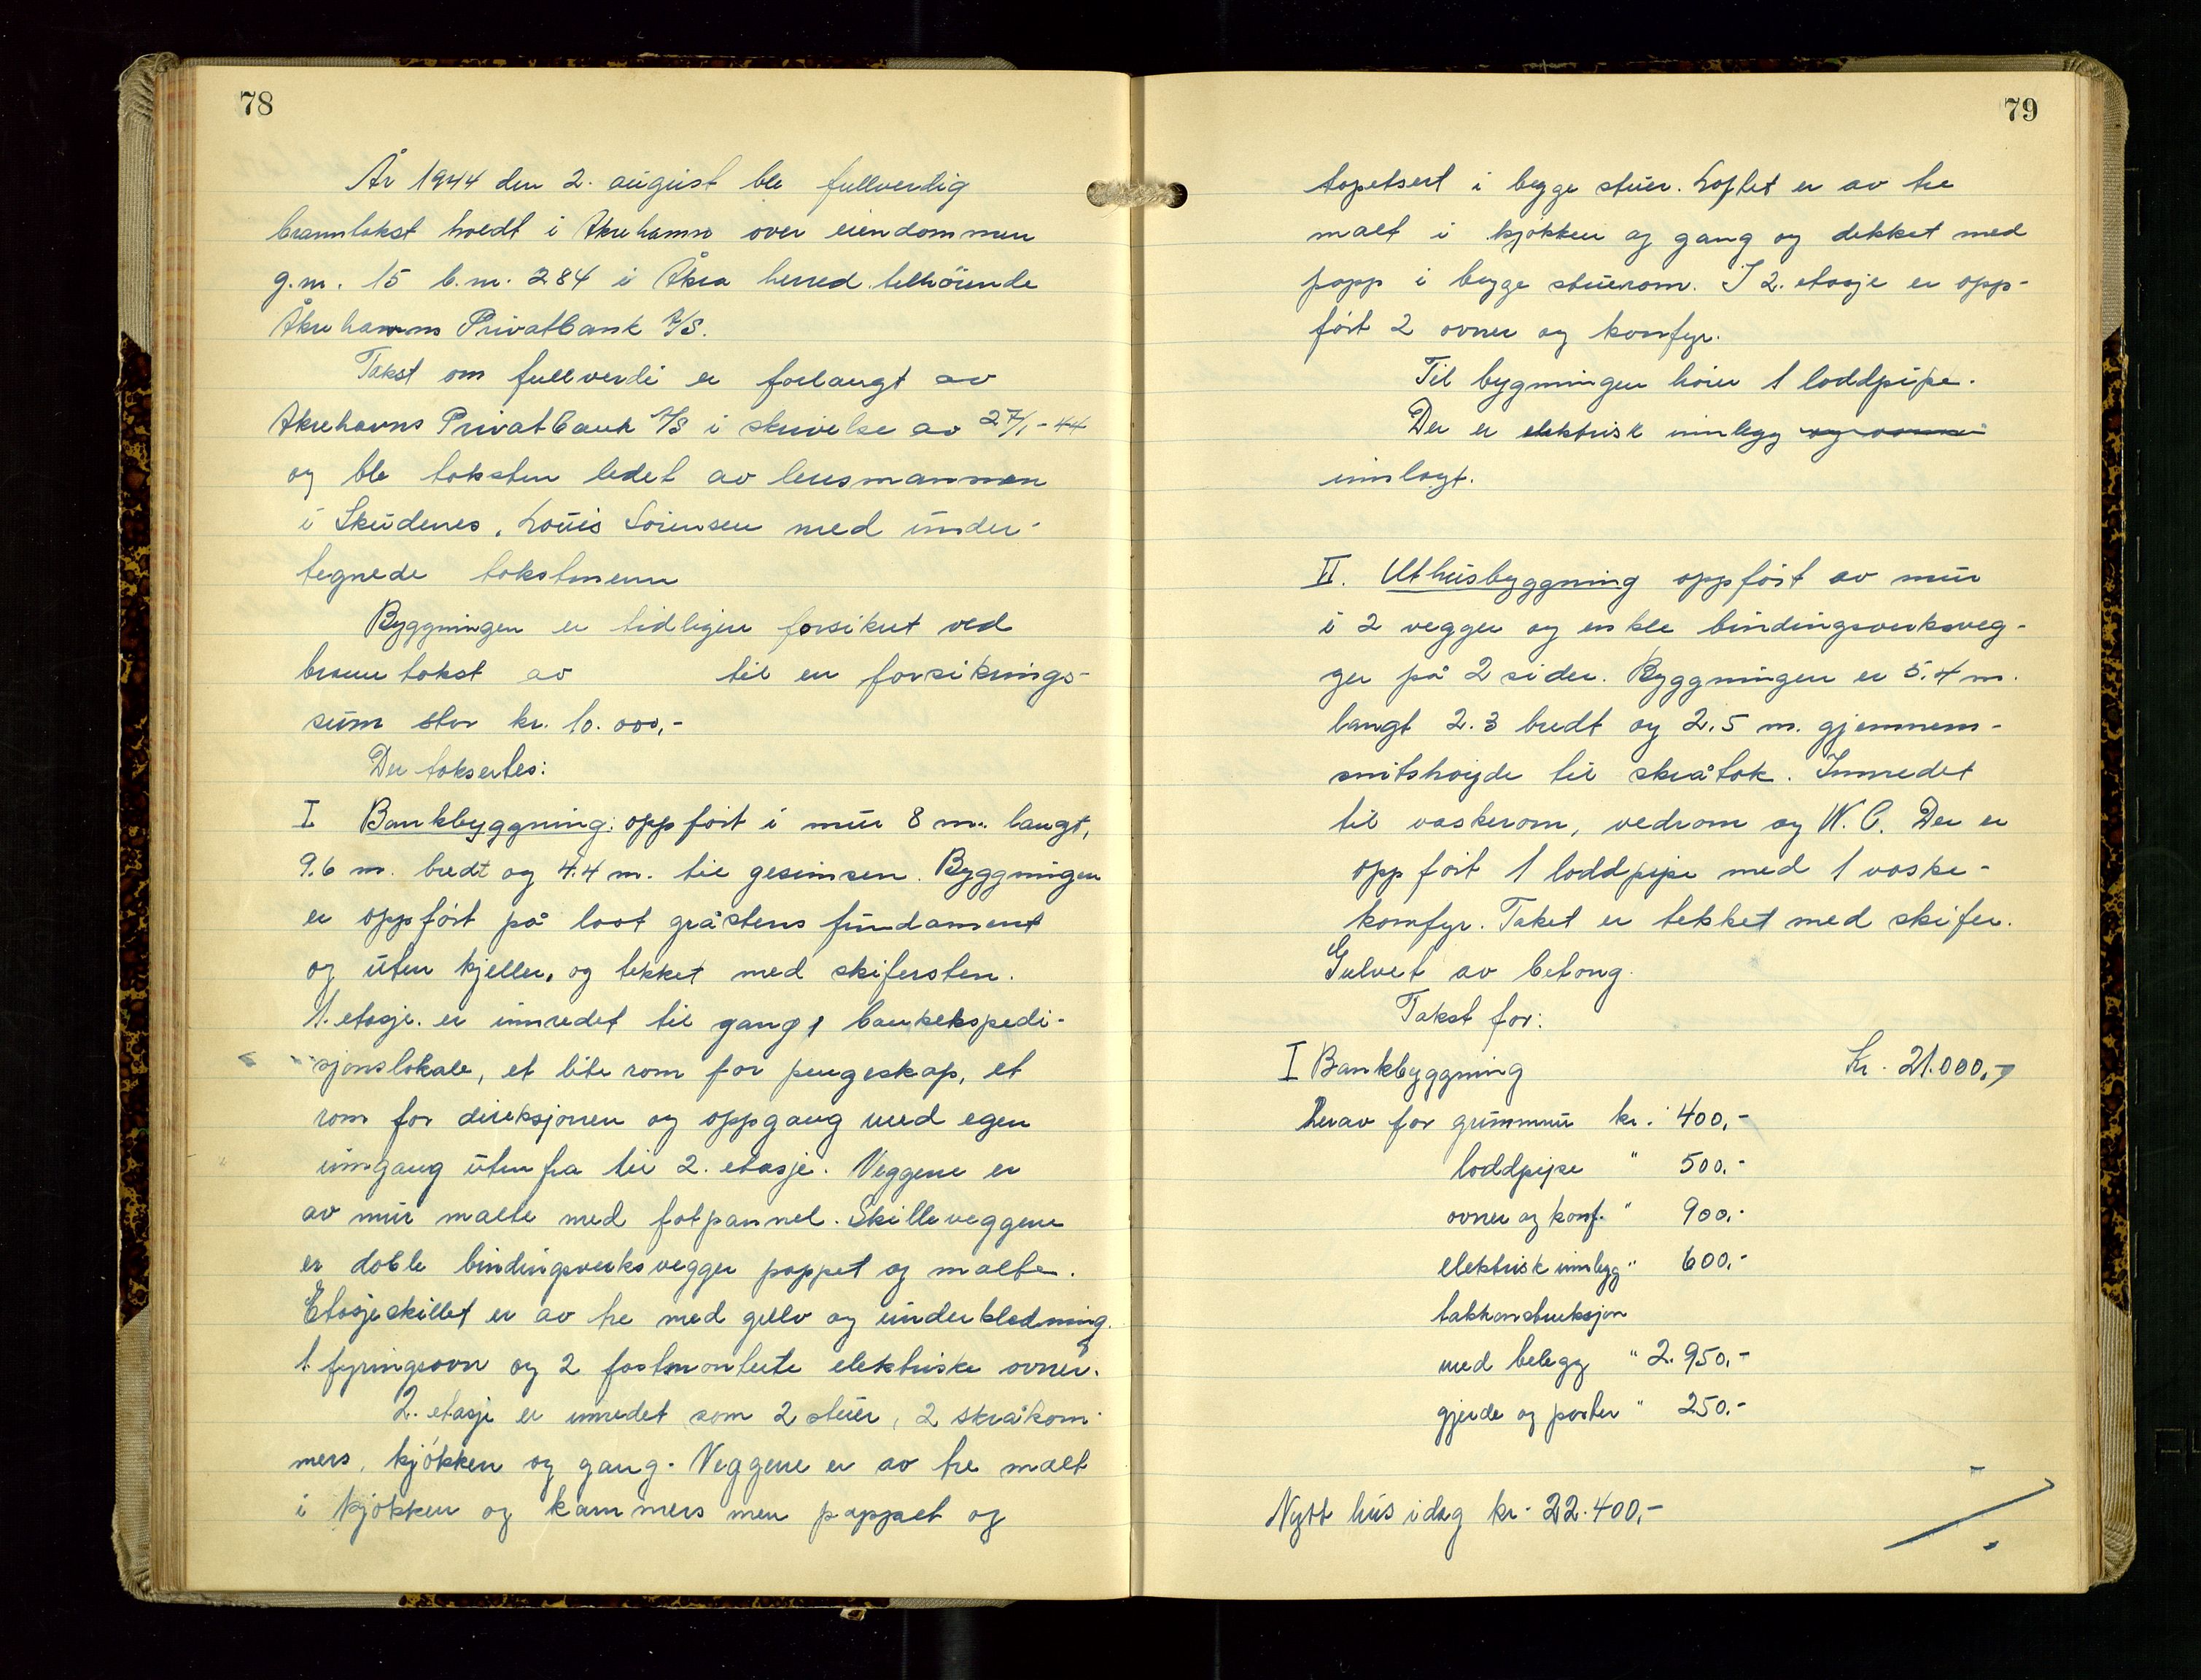 78
År 1944 den 2. august ble fullverdig
branntakst holdt i Åkrehamn over eiendommen
g.nr. 15 b.nr. 284 i Åkra herred tilhörende
Åkrehavns Privatbank A/S.
Takst om fullverdi er forlangt av
Åkrehavns Privatbank A/S i skrivelse av 27/1-44
og ble taksten ledet av lensmannen
i Skudenes, Louis Sörensen med under-
tegnede takstmenn
Byggningen er tidligere forsikret ved
branntakst av til en forsikrings-
sum stor kr. 10.000,-
Der taksertes:
I Bankbyggning: oppfört i mur 8 m. langt,
9.6 m. bredt og 4.4 m. til gesimsen. Byggningen
er oppfört på låst gråstens fundament
og uten kjeller, og tekket med skifersten.
1. etasje. er innredet til gang, bankekspedi-
sjonslokale, et lite rom for pengeskap, et
rom for direksjonen og oppgang med egen
inngang utenfra til 2. etasje. Veggene er
av mur malte med fotpannel. Skilleveggene
er doble bindingsverksvegger pappet og malte.
Etasjeskillet er av tre med gulv og underkledning.
1 fyringsovn og 2 fastmonterte elektriske ovner.
2. etasje er innredet som 2 stuer, 2 skråkam-
mers, kjökken og gang. Veggene er av tre malt
i kjökken og kammers men pappet og
79
tapetsert i begge stuer. Loftet er av tre
malt i kjökken og gang og dekket med
papp i begge stuerom. I 2. etasje er opp-
fört 2 ovner og komfyr.
Til bygningen hörer 1 loddpipe.
Der er elektrisk innlegg og ovner
innlagt.
II. Uthusbyggning oppfört av mur
i 2 vegger og enkle bindingsverksveg-
ger på 2 sider. Byggningen er 5.4 m.
langt 2.3 bredt og 2.5 m. gjennem-
snitshöyde til skråtak. Innredet
til vaskerom, vedrom og W.C. Der er
oppfört 1 loddpipe med 1 vaske-
komfyr. Taket er tekket med skifer.
Gulvet av betong.
Takst for:
I Bankbyggning Kr. 21.000,-
herav for grunnmur kr. 400,-
loddpipe " 500,-
ovner og komf. " 900,-
elektrisk innlegg " 600,-
takkonstruksjon
med belegg " 2.950,-
gjerde og porter " 250,-
Nytt hus idag kr. 22.400,-